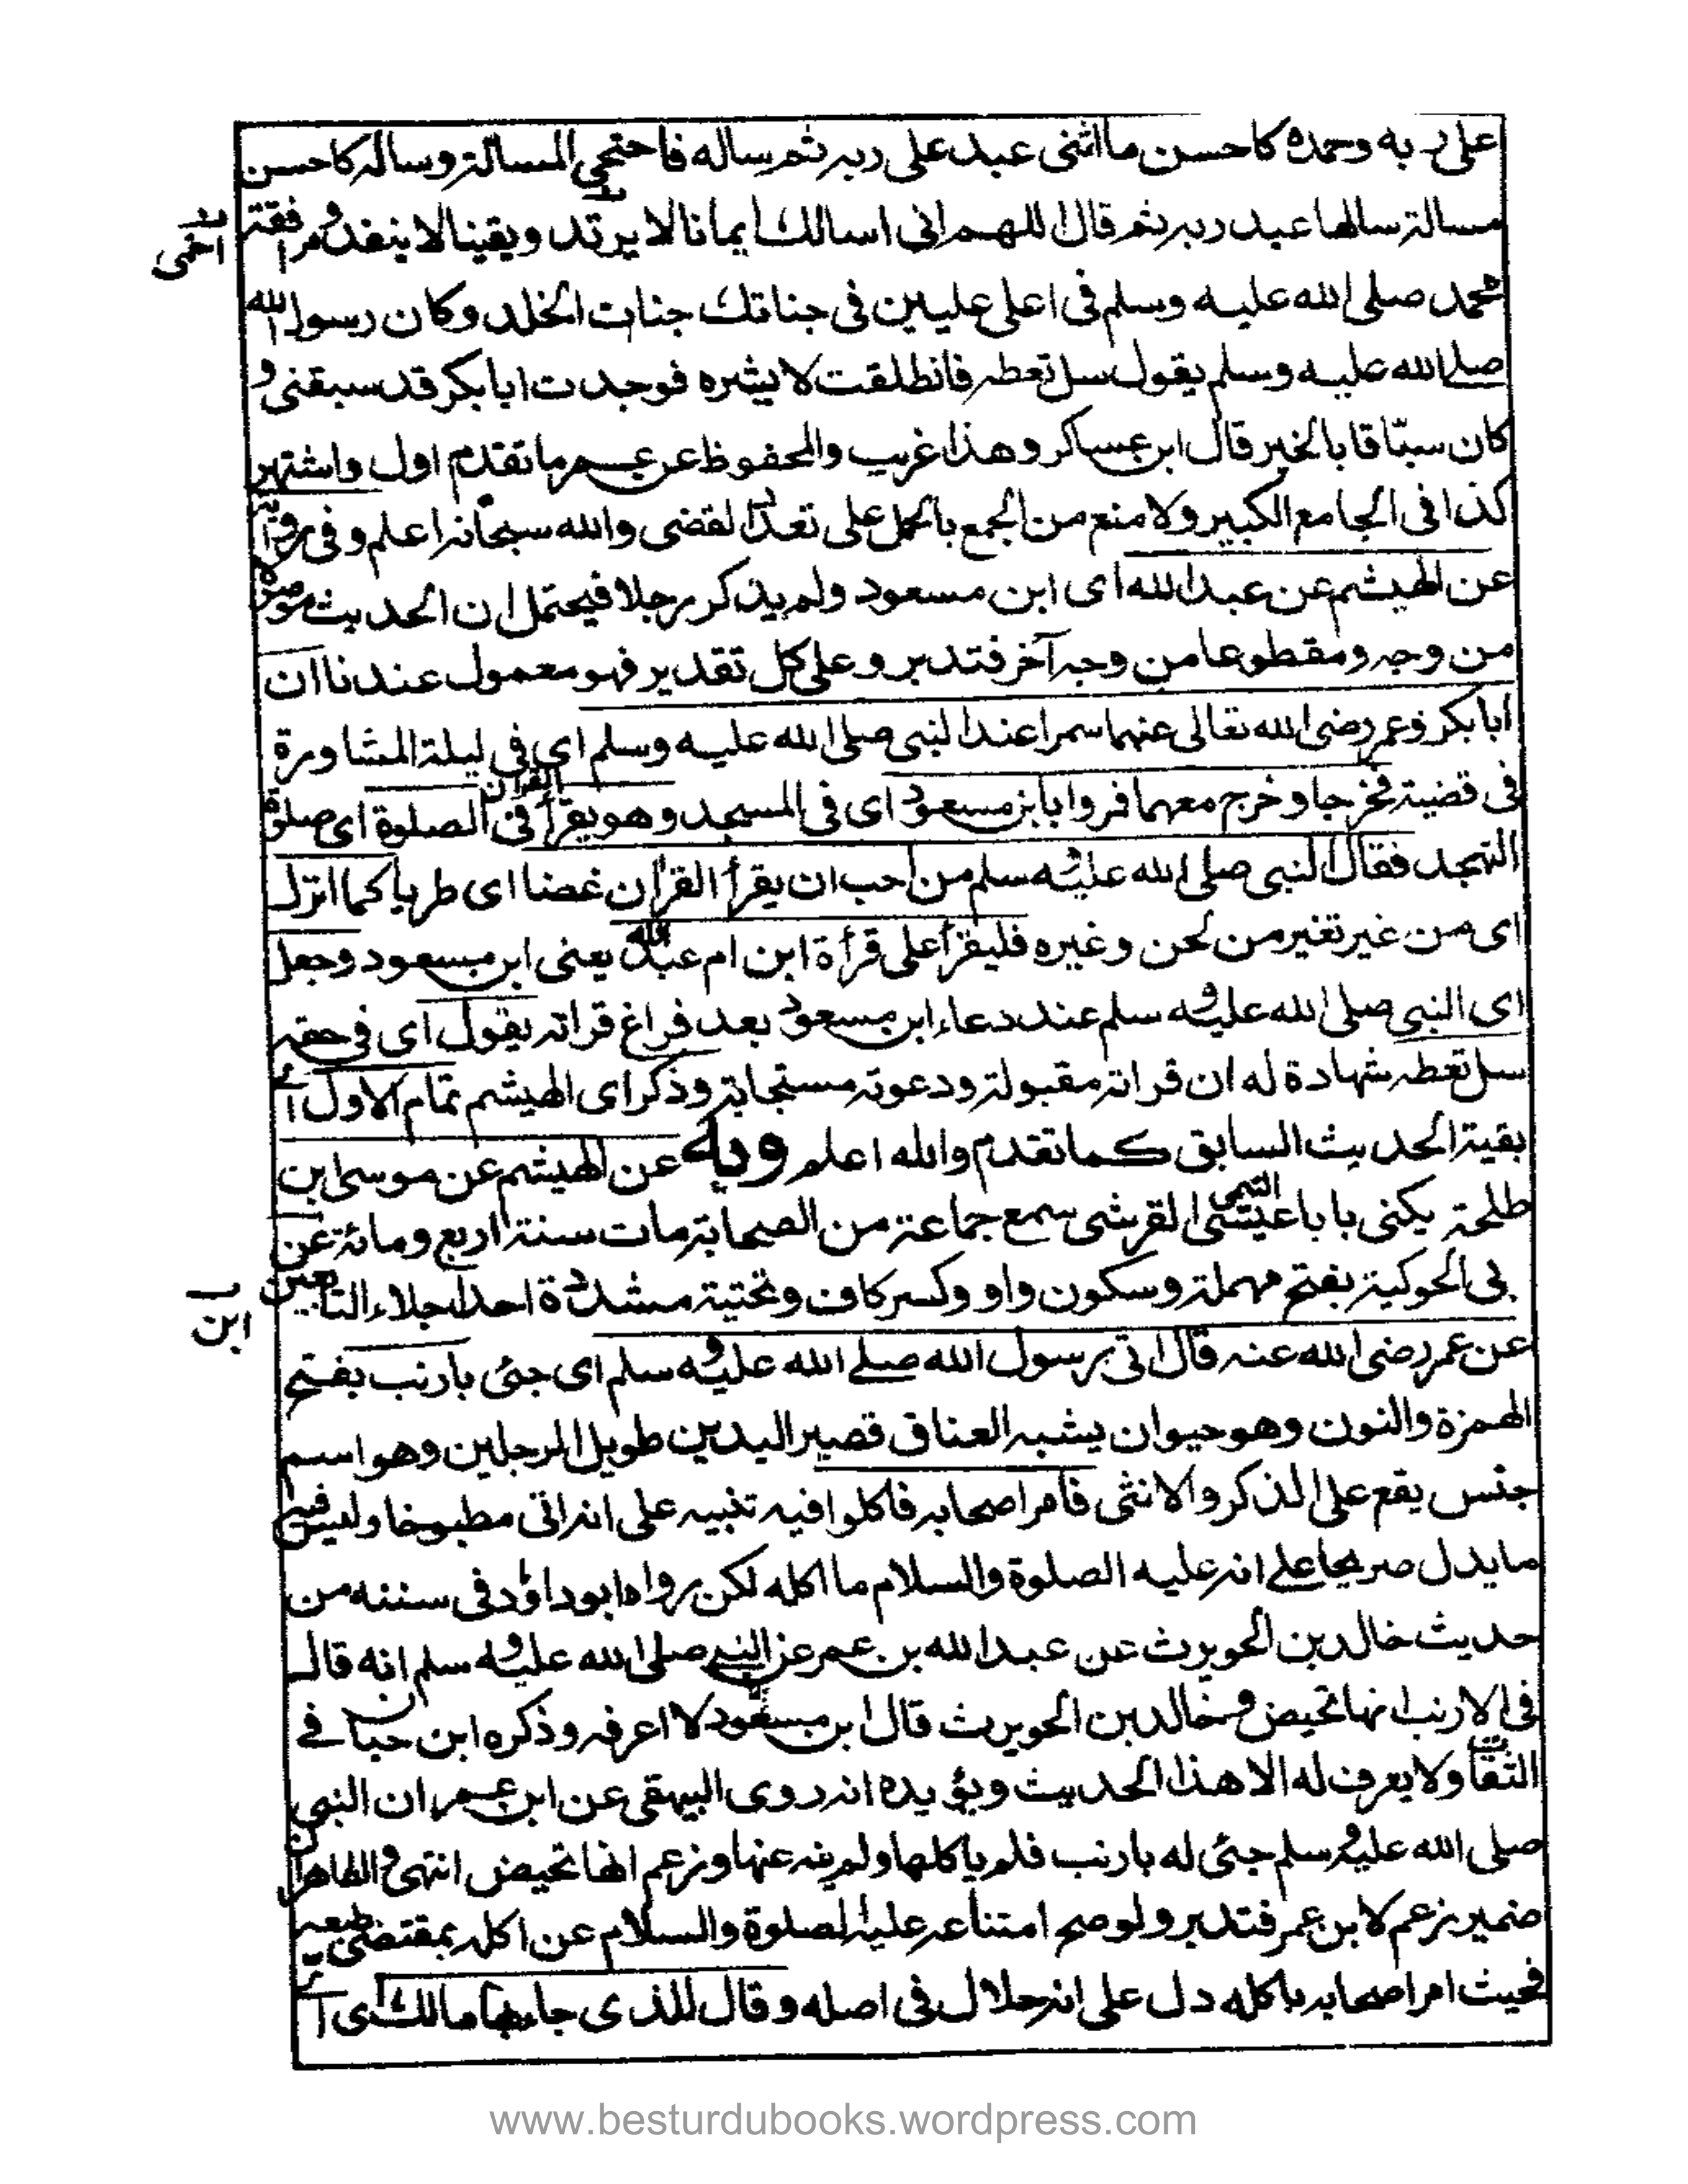 على ربه وحمده كاحسن ما اثنى عبد على ربه ثم ساله فاحتجى المسالة وساله كاحسن
مسالة سالها عبد ربه ثم قال اللهم انى اسالك ايمانا لا يرتد ويقينا لا ينفد ومرافقة
احمى
محمد صلى الله عليه وسلم فى اعلى عليين فى جناتك جنات الخلد وكان رسول الله
صلى الله عليه وسلم يقول سل تعطه فانطلقت لابشره فوجدت ابا بكر قد سبقنى و
كان سبّاقا بالخير قال ابن عساكر وهذا غريب والمحفوظ عن عمر ما تقدم اول واشتهر
كذا فى الجامع الكبير ولا منع من الجمع بالحمل على تعدد القضى والله سبحانه اعلم وفى رواية
عن الهيثم عن عبد الله اى ابن مسعود ولم يذكر رجلا فيحتمل ان الحديث موصولا
من وجه ومقطوعا من وجه آخر فتدبر وعلى كل تقدير فهو معمول عندنا ان
ابا بكر وعمر رضى الله تعالى عنهما سمرا عند النبى صلى الله عليه وسلم اى فى ليلة المشاورة
فى قضية فخرجا وخرج معهما فمروا بابن مسعود اى فى المسجد وهو يقرأ القرآن فى الصلوة اى صلوة
التهجد فقال النبى صلى الله عليه وسلم من احب ان يقرأ القرآن غضا اى طريا كما انزل
اى من غير تغير من لحن وغيره فليقرأ على قرأة ابن ام عبد الله يعنى ابن مسعود وجعل
اى النبى صلى الله عليه وسلم عند دعاء ابن مسعود بعد فراغ قراته يقول اى فى حقه
سل تعطه شهادة له ان قراته مقبولة ودعوته مستجابة وذكر اى الهيثم تمام الاول اى
بقية الحديث السابق كما تقدم والله اعلم وبه عن الهيثم عن موسى ابن
طلحة يكنى بابا عيسى التيمى القرشى سمع جماعة من الصحابة مات سنة اربع ومائة عن
بى الحوكية بفتح مهملة وسكون واو وكسر كاف وتحتية مشددة احد اجلاء التابعين
ابن
عن عمر رضى الله عنه قال اتى برسول الله صلے الله عليه وسلم اى جئى بارنب بفتح
الهمزة والنون وهو حيوان يشبه العناق قصير اليدين طويل الرجلين وهو اسم
جنس يقع على الذكر والانثى فامر اصحابه فاكلوا فيه تنبيه على انه اتى مطبوخا وليس فيه
ما يدل صريحا على انه عليه الصلوة والسلام ما اكله لكن رواه ابو داؤد فى سننه من
حديث خالد بن الحويرث عن عبد الله بن عمر عن النبى صلى الله عليه وسلم انه قال
فى الارنب انها تحيض وخالد بن الحويرث قال ابن مسعود لا اعرفه وذكره ابن حبان فے
الثقات ولا يعرف له الا هذا الحديث ويؤيده انه روى البيهقى عن ابن عمر ان النبى
صلى الله عليه وسلم جئى له بارنب فلم ياكلها ولم ينه عنها وزعم انها تحيض انتهى والظاهر ان
ضمير زعم لابن عمر فتدبر ولو صح امتناعه عليه الصلوة والسلام عن اكله بمقتضى طبعه
فحيث امر اصحابه باكله دل على انه حلال فى اصله وقال للذى جاء بها مالك اى اى
www.besturdubooks.wordpress.com